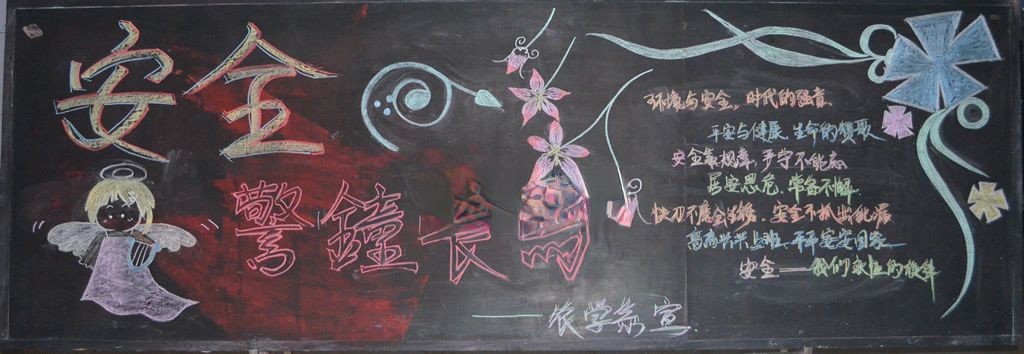 安全
警鐘长鸣
环境与安全，时代的强音
平安与健康 生命的赞歌
安全靠规章，严守不能忘
居安思危，常备不懈
快刀不磨会生锈，安全不抓出纰漏
高高兴兴上班，平平安安回家
安全——我们永恒的旋律
——农学系宣